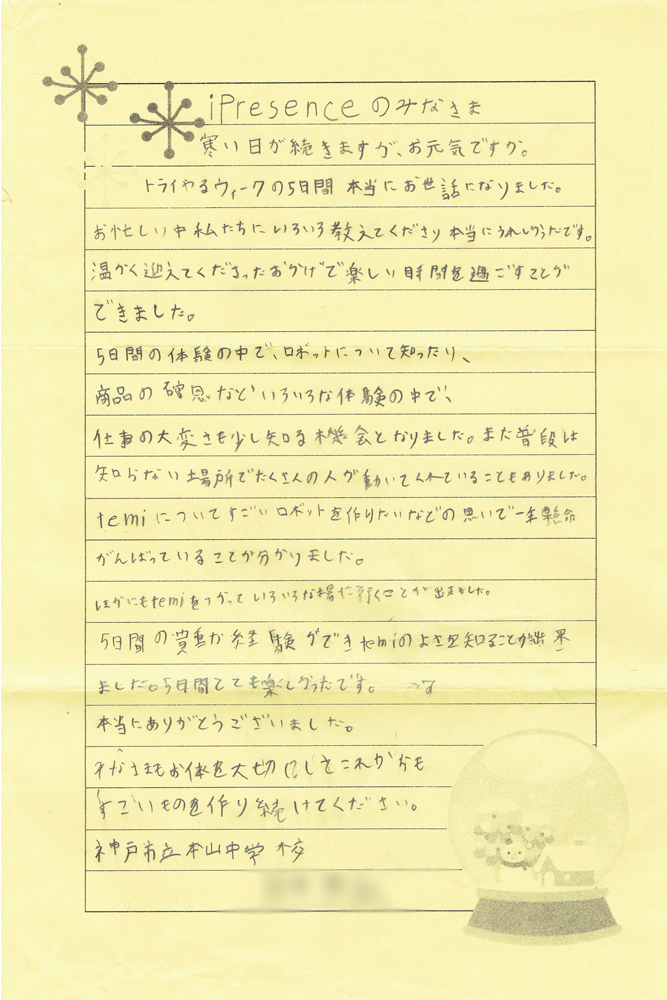 iPresenceのみなさま
寒い日が続きますが、お元気ですか。
トライやるウィークの5日間 本当にお世話になりました。
お忙しい中私たちにいろいろ教えてくださり本当にうれしかったです。
温かく迎えてくださったおかげで楽しい時間を過ごすことが
できました。
5日間の体験の中で、ロボットについて知ったり、
商品の確認などいろいろな体験の中で、
仕事の大変さを少し知る機会となりました。また普段は
知らない場所でたくさんの人が動いてくれていることもありました。
temiについてすごいロボットを作りたいなどの思いで一生懸命
がんばっていることが分かりました。
ほかにもtemiをつかっていろいろな場に行くことが出来ました。
5日間の貴重な経験ができtemiのよさを知ることが出来
ました。5日間とても楽しかったです。
本当にありがとうございました。
みなさまもお体を大切にしてこれからも
すごいものを作り続けてください。
神戸市立本山中学校